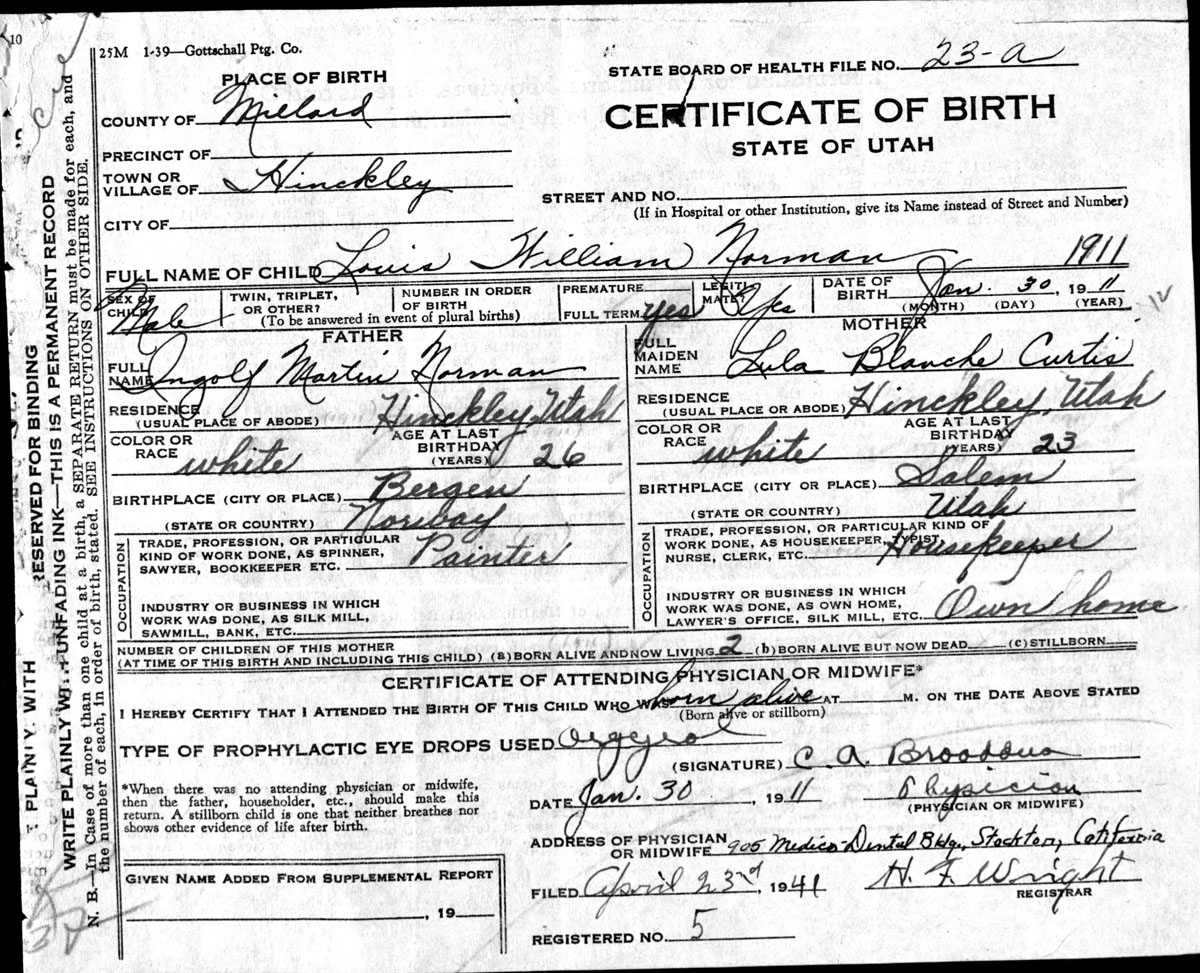 10
25M 1-39—Gottschall Ptg. Co.
STATE BOARD OF HEALTH FILE NO. 23-a
PLACE OF BIRTH
COUNTY OF Millard
CERTIFICATE OF BIRTH
STATE OF UTAH
PRECINCT OF
TOWN OR VILLAGE OF Hinckley
STREET AND NO.
(If in Hospital or other Institution, give its Name instead of Street and Number)
CITY OF
FULL NAME OF CHILD Louis William Norman 1911
SEX OF CHILD Male
TWIN, TRIPLET, OR OTHER?
NUMBER IN ORDER OF BIRTH
(To be answered in event of plural births)
PREMATURE
FULL TERM yes
LEGITIMATE? Yes
DATE OF BIRTH Jan. 30, 1911
(MONTH) (DAY) (YEAR)
FATHER
FULL NAME Ingolf Martin Norman
RESIDENCE (USUAL PLACE OF ABODE) Hinckley, Utah
COLOR OR RACE white
AGE AT LAST BIRTHDAY (YEARS) 26
BIRTHPLACE (CITY OR PLACE) Bergen
(STATE OR COUNTRY) Norway
OCCUPATION
TRADE, PROFESSION, OR PARTICULAR KIND OF WORK DONE, AS SPINNER, SAWYER, BOOKKEEPER ETC. Painter
INDUSTRY OR BUSINESS IN WHICH WORK WAS DONE, AS SILK MILL, SAWMILL, BANK, ETC.
MOTHER
FULL MAIDEN NAME Lula Blanche Curtis
RESIDENCE (USUAL PLACE OR ABODE) Hinckley, Utah
COLOR OR RACE white
AGE AT LAST BIRTHDAY (YEARS) 23
BIRTHPLACE (CITY OR PLACE) Salem
(STATE OR COUNTRY) Utah
OCCUPATION
TRADE, PROFESSION, OR PARTICULAR KIND OF WORK DONE, AS HOUSEKEEPER, TYPIST, NURSE, CLERK, ETC. Housekeeper
INDUSTRY OR BUSINESS IN WHICH WORK WAS DONE, AS OWN HOME, LAWYER'S OFFICE, SILK MILL, ETC. Own home
NUMBER OF CHILDREN OF THIS MOTHER
(AT TIME OF THIS BIRTH AND INCLUDING THIS CHILD) (a) BORN ALIVE AND NOW LIVING 2 (b) BORN ALIVE BUT NOW DEAD (c) STILLBORN
CERTIFICATE OF ATTENDING PHYSICIAN OR MIDWIFE*
I HEREBY CERTIFY THAT I ATTENDED THE BIRTH OF THIS CHILD WHO WAS born alive AT M. ON THE DATE ABOVE STATED
(Born alive or stillborn)
TYPE OF PROPHYLACTIC EYE DROPS USED
(SIGNATURE) C. A. Broaddus
*When there was no attending physician or midwife, then the father, householder, etc., should make this return. A stillborn child is one that neither breathes nor shows other evidence of life after birth.
DATE Jan. 30, 1911 Physician
(PHYSICIAN OR MIDWIFE)
ADDRESS OF PHYSICIAN OR MIDWIFE 905 Medico-Dental Bldg., Stockton, California
GIVEN NAME ADDED FROM SUPPLEMENTAL REPORT
, 19
FILED April 23rd, 1941 H. F. Wright
REGISTRAR
REGISTERED NO. 5
PLAINLY, WITH
RESERVED FOR BINDING
WRITE PLAINLY WITH UNFADING INK—THIS IS A PERMANENT RECORD
N. B.—In Case of more than one child at a birth, a SEPARATE RETURN must be made for each, and
the number of each, in order of birth, stated. SEE INSTRUCTIONS ON OTHER SIDE.
37